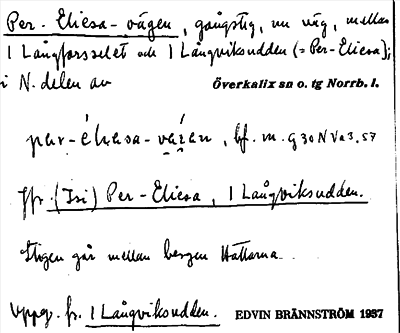 Per-Eliesa-vägen, gångstig, nu väg, mellan
1 Långforsselet och 1 Långviksudden (= Per-Eliesa);
i N. delen av Överkalix sn o. tg Norrb. l.
bf. m. G30NVa3.57
Jfr. (Isi) Per-Eliesa, 1 Långviksudden.
Stigen går mellan bergen Hattarna.
Uppg. fr. 1 Långviksudden. EDVIN BRÄNNSTRÖM 1937